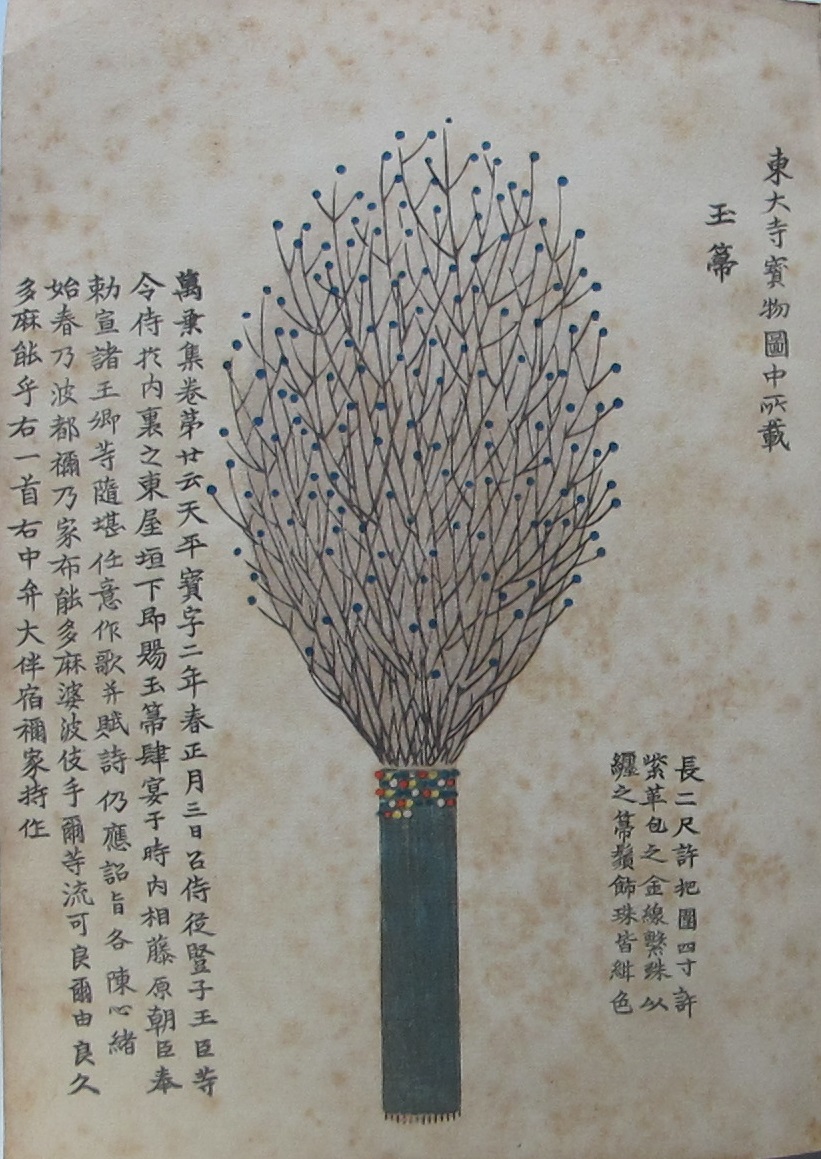 東大寺寳物圖中所載
玉箒
長二尺許把圍四寸許
紫革包之金線繫珠以
纒之箒鬚飾珠皆紺色
萬葉集卷苐廿云天平寳字二年春正月三日召侍從豎子王臣䓁
令侍扵内裏之東屋垣下即賜玉箒肆宴于時内相藤原朝臣奉
勅宣諸王卿䓁隨堪任意作歌并賦詩仍應詔旨各陳心緒
始春乃波都禰乃家布能多麻婆波伎手爾䓁流可良爾由良久
多麻能乎右一首右中弁大伴宿禰家持作